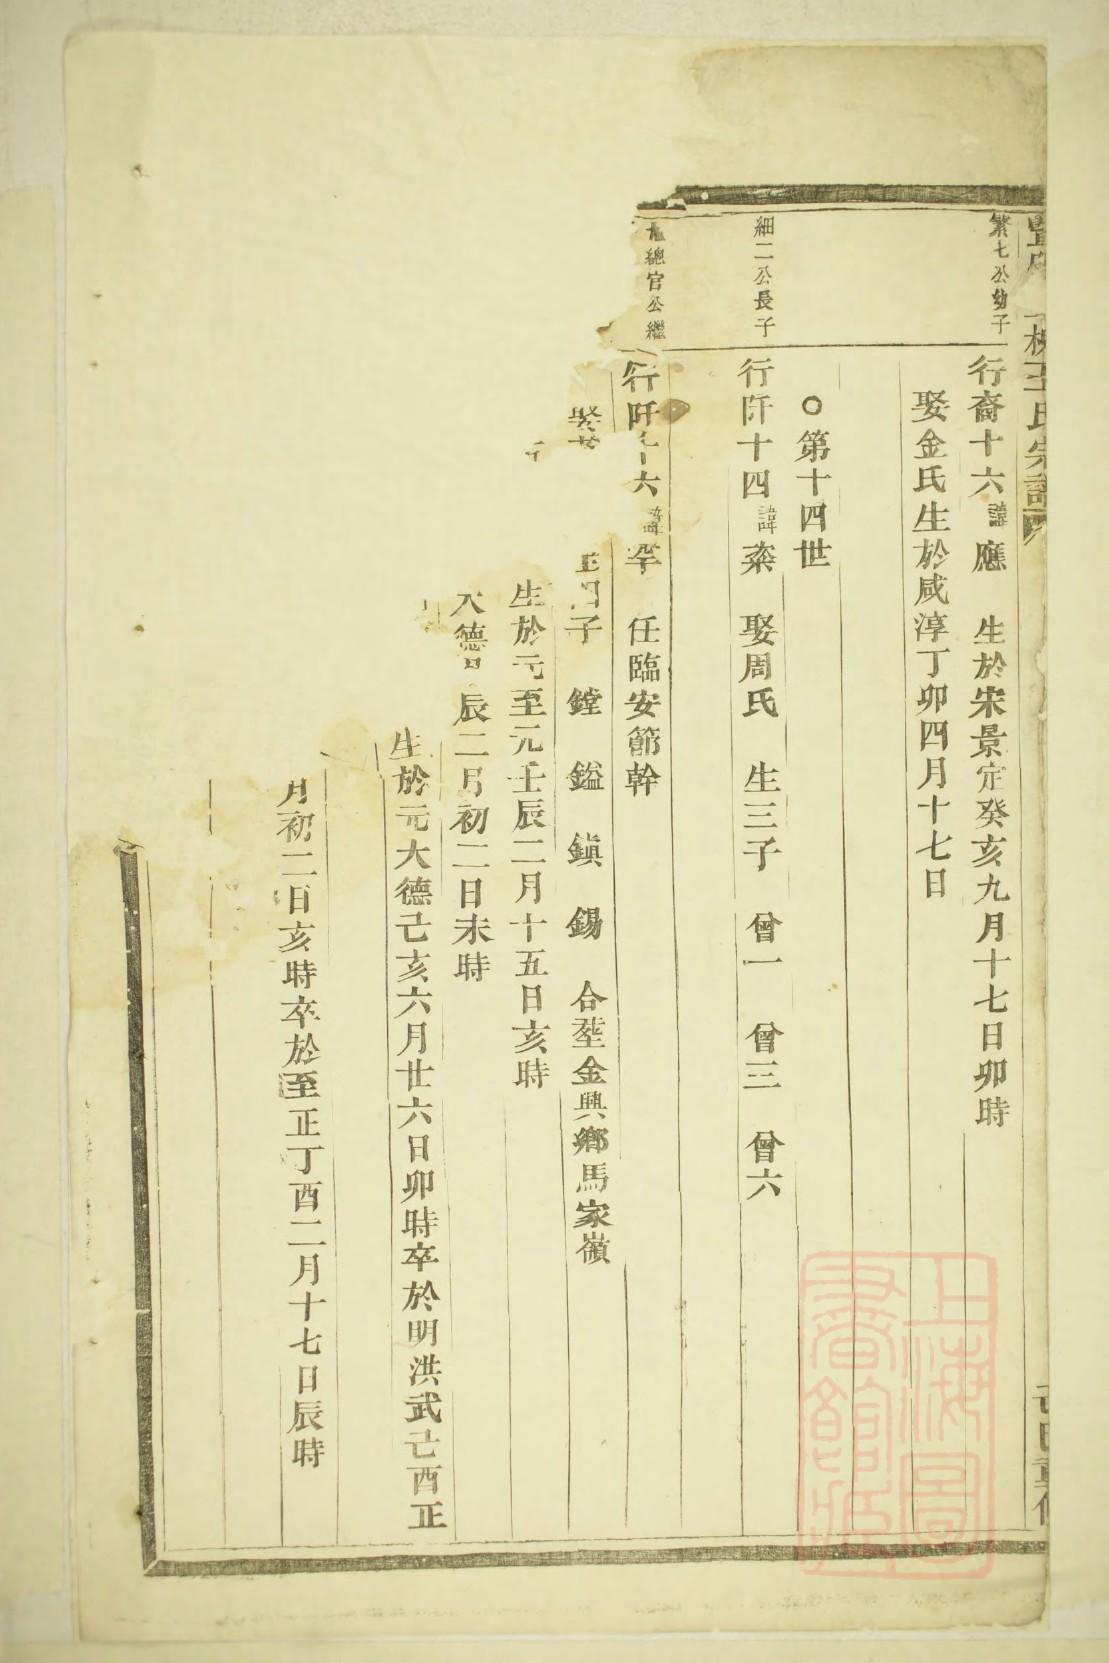 王氏宗譜
繁七公幼子
行裔十六諱應 生於宋景定癸亥九月十七日卯時
娶金氏生於咸淳丁卯四月十七日
○第十四世
細二公長子
行阡十四諱 娶周氏 生三子 曾一 曾三 曾六
總官公繼
行阡十六諱 任臨安節幹
娶 四子 鏜 鎰 鎮 錫 合塟金興鄉馬家嶺
生於元至元壬辰二月十五日亥時
大德 辰二月初二日未時
生於元大德己亥六月廿六日卯時卒於明洪武己酉正
月初二日亥時卒於至正丁酉二月十七日辰時
上海圖
書館藏